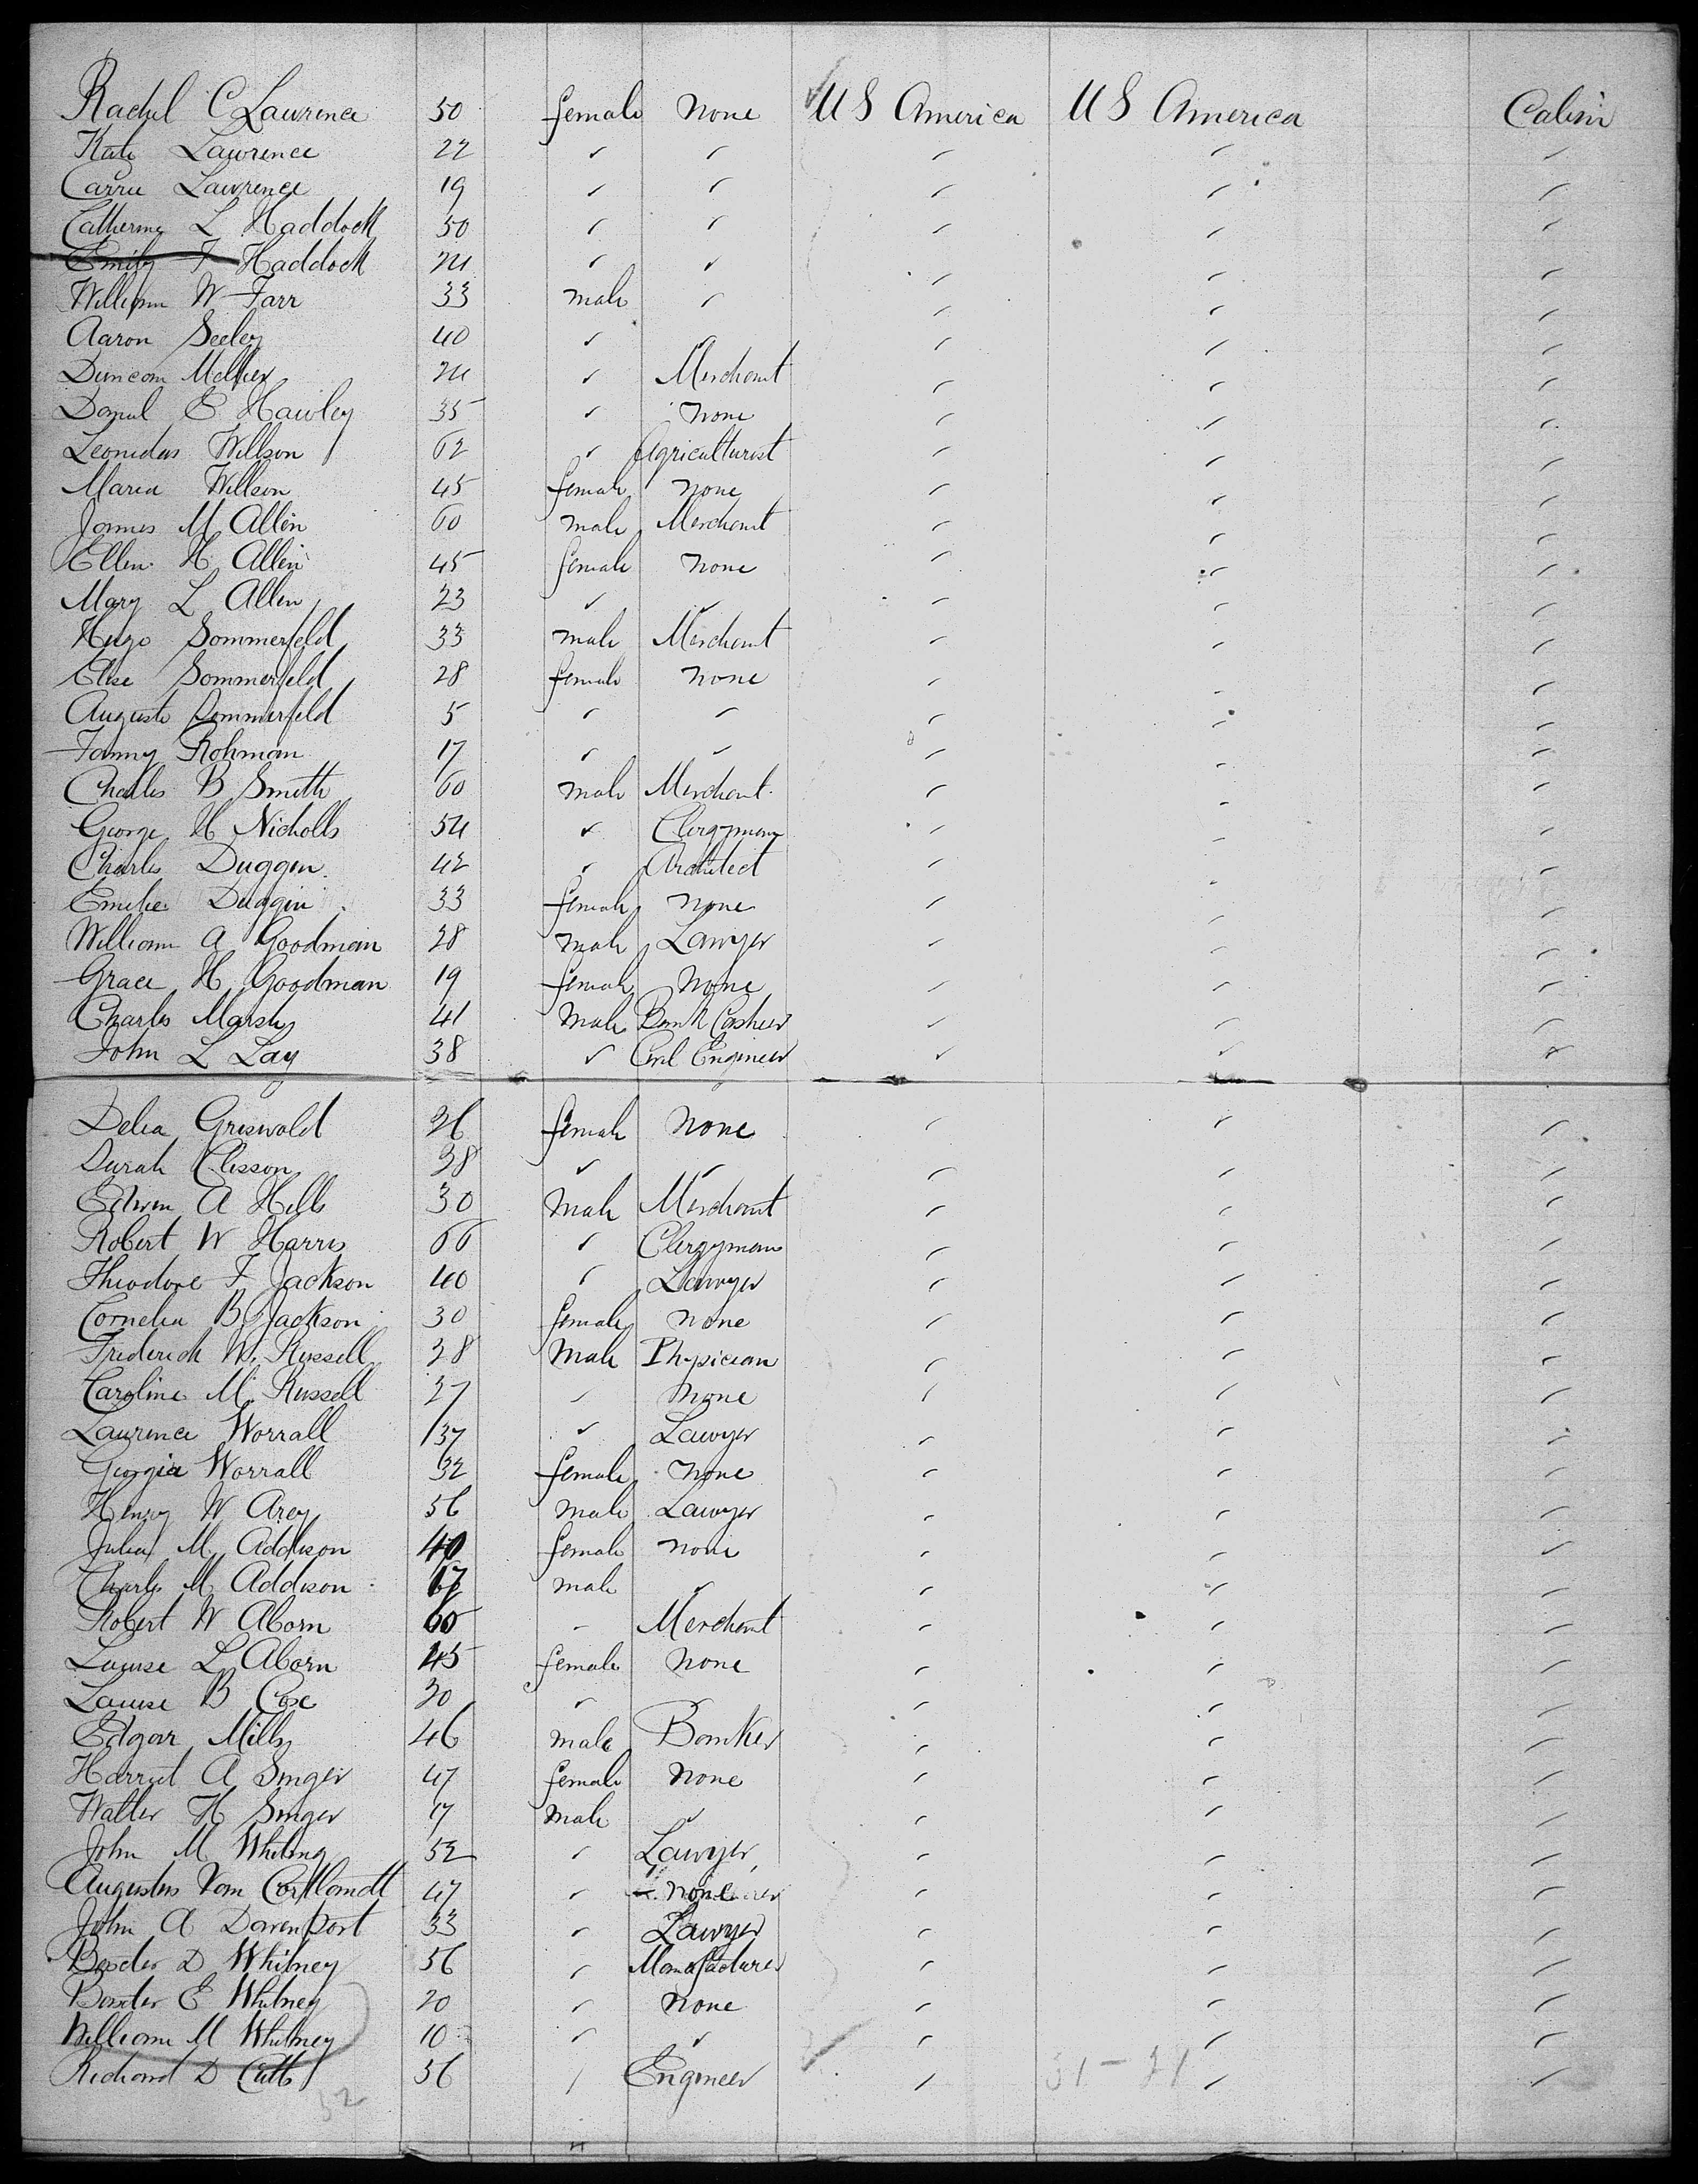 Rachel C Lawrence 50 female None US America US America Cabin
Kate Lawrence 22 ✓ ✓ ✓ ✓ ✓
Carrie Lawrence 19 ✓ ✓ ✓ ✓ ✓
Catherine L Haddock 50 ✓ ✓ ✓ ✓ ✓
Emily F Haddock 24 ✓ ✓ ✓ ✓ ✓
William W Farr 33 male ✓ ✓ ✓ ✓
Aaron Seeley 40 ✓ ✓ ✓ ✓
Duncan 24 ✓ Merchant ✓ ✓ ✓
Daniel E Hawley 35 ✓ none ✓ ✓ ✓
Leonidas Willson 62 ✓ Agriculturist ✓ ✓ ✓
Maria Willson 45 female none ✓ ✓ ✓
James M Allen 60 male Merchant ✓ ✓ ✓
Ellen H Allen 45 female none ✓ ✓ ✓
Mary L Allen 23 ✓ ✓ ✓ ✓ ✓
Hugo Sommerfeld 33 male Merchant ✓ ✓ ✓
Elise Sommerfeld 28 female none ✓ ✓ ✓
Auguste Sommerfeld 5 ✓ ✓ ✓ ✓ ✓
Fanny Rohman 17 ✓ ✓ ✓ ✓ ✓
Charles B Smith 60 male Merchant ✓ ✓ ✓
George H Nicholls 54 ✓ Clergyman ✓ ✓ ✓
Charles Duggin 42 ✓ Architect ✓ ✓ ✓
Emelie Duggin 33 female none ✓ ✓ ✓
William A Goodman 28 male Lawyer ✓ ✓ ✓
Grace H Goodman 19 female None ✓ ✓ ✓
Charles Marsh 41 Male Bank Cashier ✓ ✓ ✓
John L Lay 38 ✓ Civil Engineer ✓ ✓ ✓
Delia Griswold 26 female None ✓ ✓ ✓
Sarah Clisson 38 ✓ ✓ ✓ ✓ ✓
Edwin A Hills 30 Male Merchant ✓ ✓ ✓
Robert W Harris 66 ✓ Clergyman ✓ ✓ ✓
Theodore F Jackson 40 ✓ Lawyer ✓ ✓ ✓
Cornelia B Jackson 30 female none ✓ ✓ ✓
Frederick W. Russell 38 Male Physician ✓ ✓ ✓
Caroline M. Russell 27 ✓ none ✓ ✓ ✓
Laurence Worrall 37 ✓ Lawyer ✓ ✓ ✓
Georgia Worrall 32 female none ✓ ✓ ✓
Henry W Arey 56 male Lawyer ✓ ✓ ✓
Julia M Addison 40 female none ✓ ✓ ✓
Charles M Addison male ✓ ✓ ✓ ✓
Robert W Aborn 60 ✓ Merchant ✓ ✓ ✓
Louise L Aborn 45 female None ✓ ✓ ✓
Louise B Coxe 30 ✓ ✓ ✓ ✓
Edgar Mills 46 male Banker ✓ ✓ ✓
Harriet A Singer 47 female None ✓ ✓ ✓
Walter H Singer 17 male ✓ ✓ ✓ ✓
John M Whiting 52 ✓ Lawyer ✓ ✓ ✓
Augustus Van Cortlandt 47 ✓ none ✓ ✓ ✓
John A Davenport 33 ✓ Lawyer ✓ ✓ ✓
Baxter D Whitney 56 ✓ Manufacturer ✓ ✓ ✓
Baxter E Whitney 20 ✓ none ✓ ✓ ✓
William M Whitney 10 ✓ ✓ ✓ ✓ ✓
Richard D Cutts 56 ✓ Engineer ✓ 31-21 ✓ ✓
52